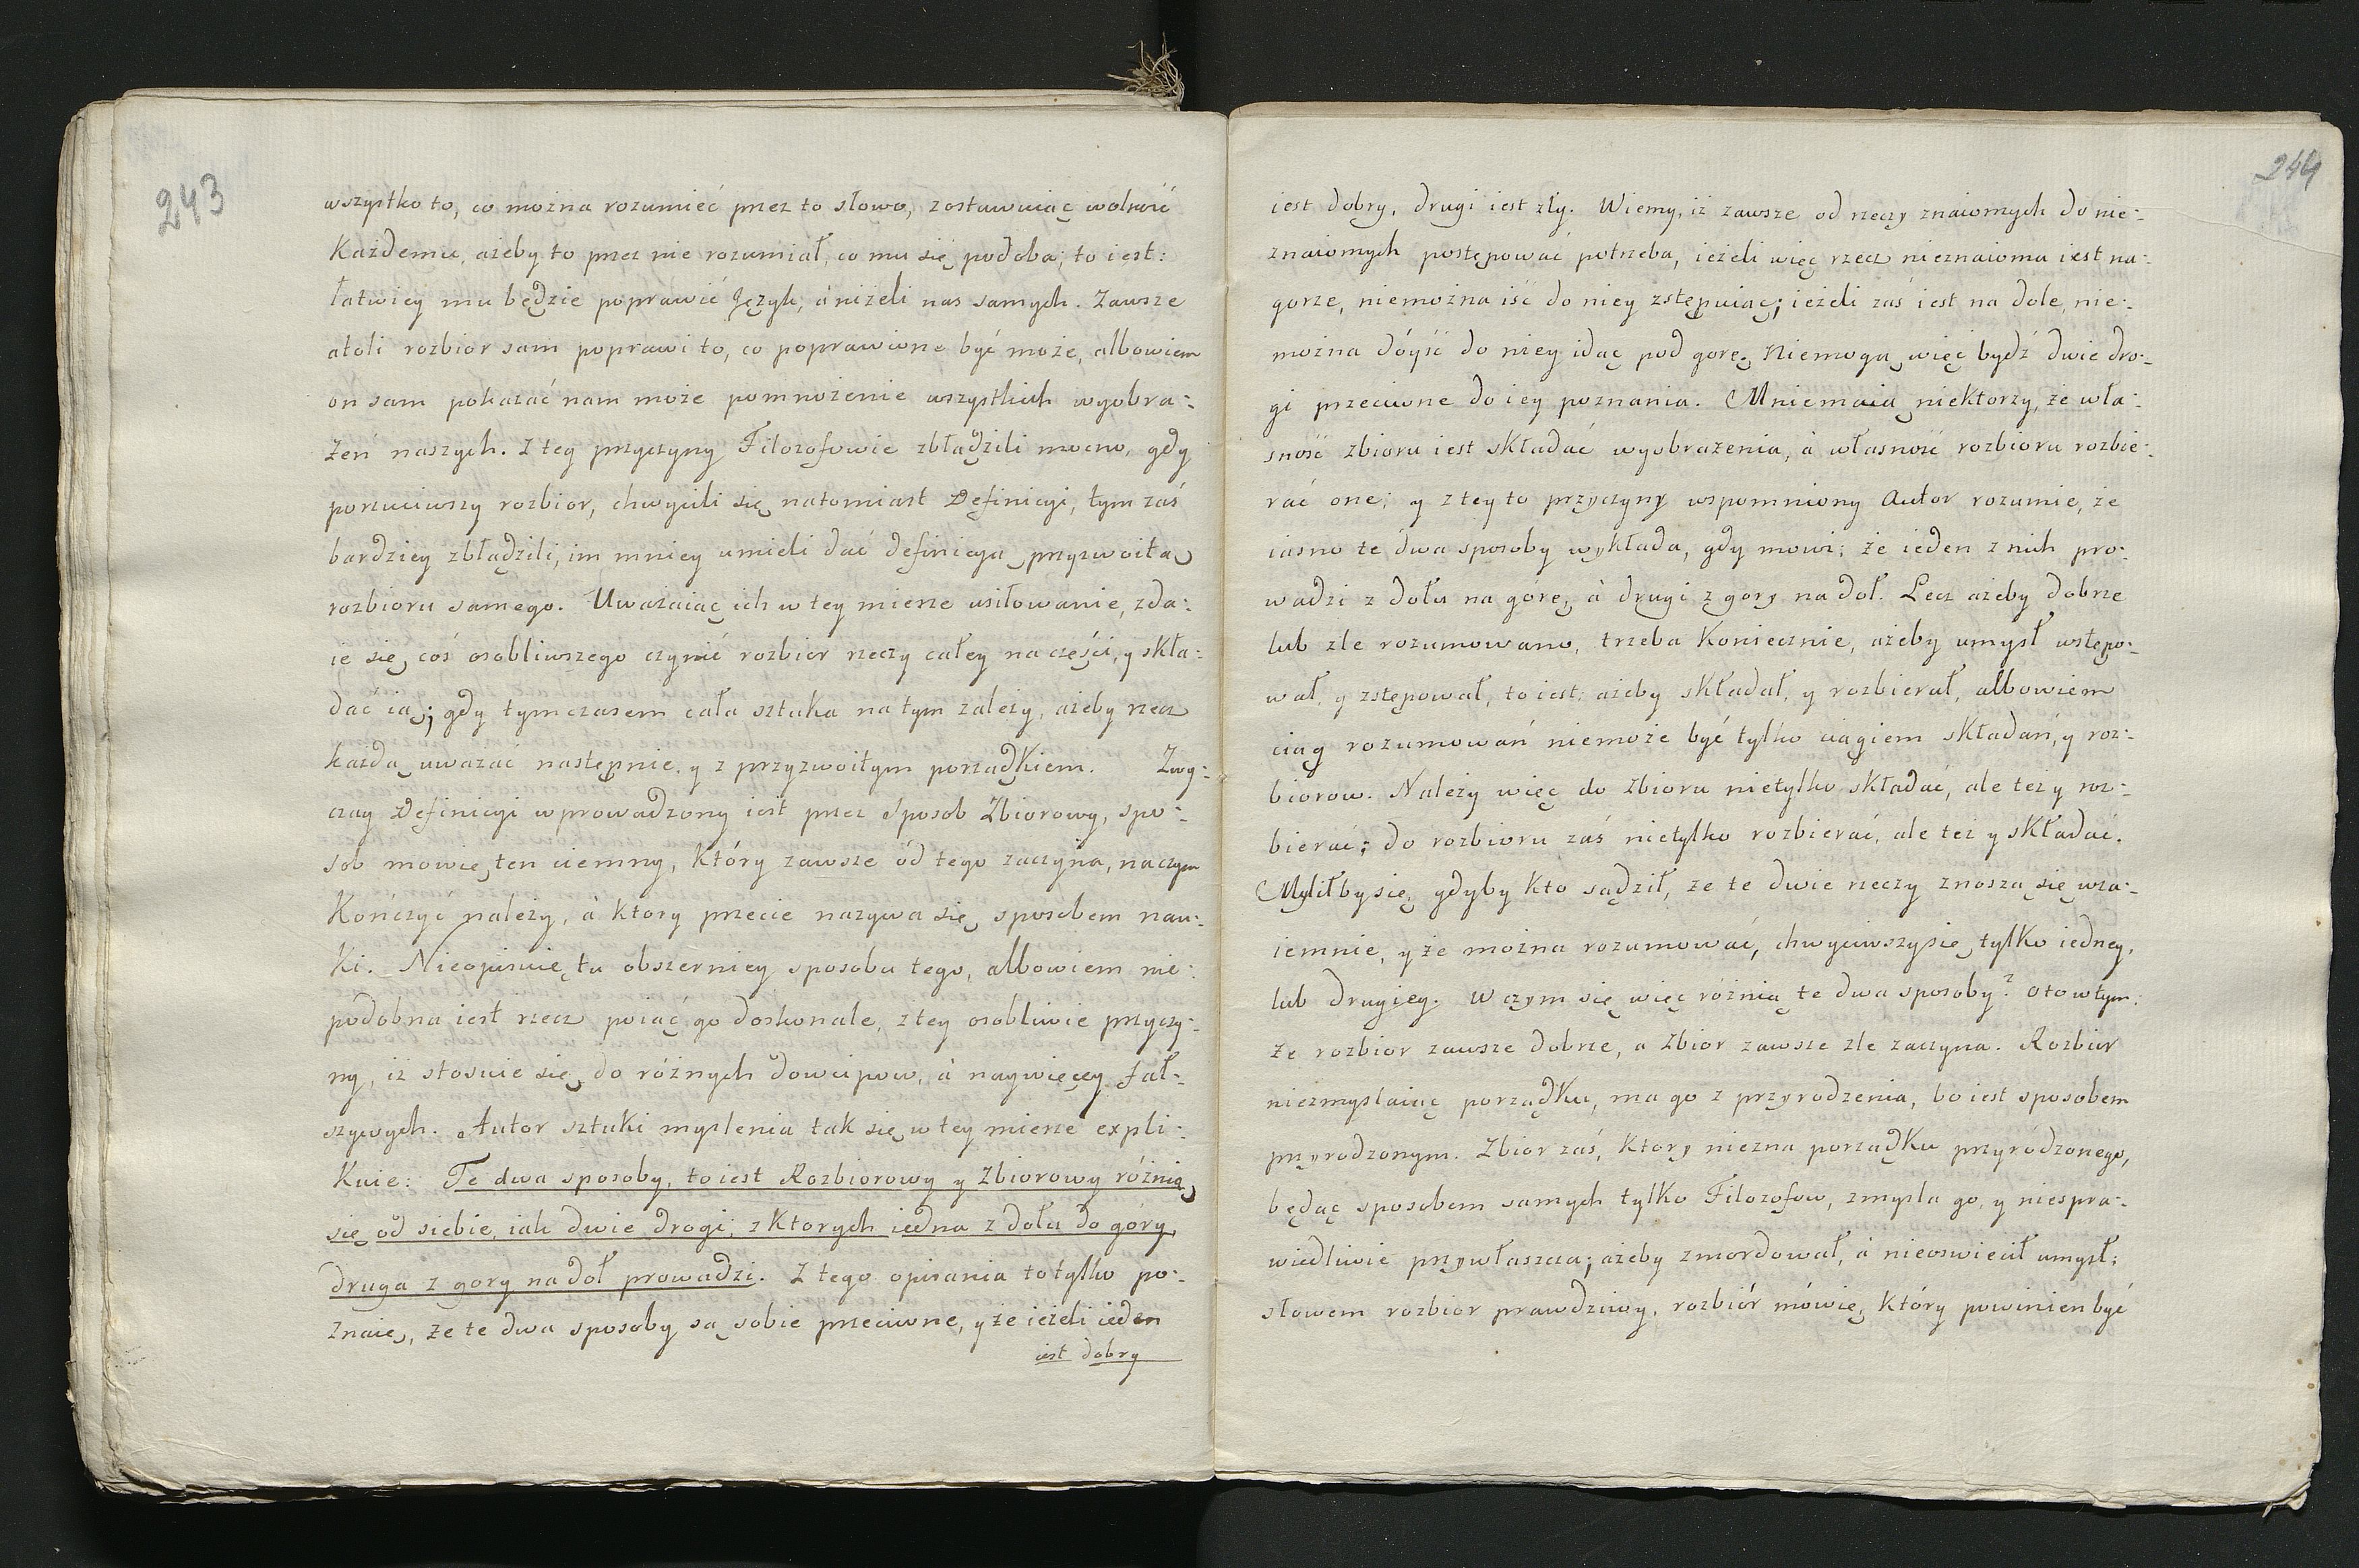 243
wszystko to, co można rozumieć przez to słowo, zostawuiąc wolność
Każdemu, ażeby to przez nie rozumiał, co mu się podoba; to iest:
łatwiey mu będzie poprawić Język, àniżeli nas samych. Zawsze
atoli rozbior sam poprawi to, co poprawione być może, albowiem
on sam pokazać nam może pomnożenie wszystkich wyobra-:
żeń naszych. Z tey przyczyny Filozofowie zbłądzili mocno, gdy
porzuciwszy rozbior, chwycili się natomiast Definicyi, tym zaś
bardziey zbłądzili, im mniey umieli dać definicyą przyzwoitą
rozbioru samego. Uważaiąc ich w tey mierze usiłowanie, zda-:
ie się coś osobliwszego czynić rozbior rzeczy całey na części, y skła-:
dać ią; gdy tymczasem cała sztuka na tym zależy, ażeby rzecz
każdą uważać następnie, y z przyzwoitym porządkiem. Zwy-:
czay Definicyi wprowadzony iest przez Sposob Zbiorowy, spo-:
sob mowię ten ciemny, który zawsze od tego zaczyna, na czym
Kończyć należy, à ktory przecie nazywa się sposobem nau-:
Ki. Nieopisuię tu obszerniey sposobu tego, albowiem nie-:
podobna iest rzecz poiąć go doskonale, z tey osobliwie przyczy-:
ny, iż stosuie się do różnych dowcipow, à naywięcey fał-:
szywych. Autor sztuki myslenia tak się w tey mierze expli-:
Kuie: Te dwa sposoby, to iest Rozbiorowy y Zbiorowy różnią
się od siebie, iak dwie drogi; z Ktorych iedna z dołu do góry,
druga z gory na doł prowadzi. Z tego opisania to tylko po-:
znaię, że te dwa sposoby są sobie przeciwne, y że ieżeli ieden
iest dobry
244
iest dobry, drugi iest zły. Wiemy, iż zawsze od rzeczy znaiomych do nie-:
znaiomych postępować potrzeba, ieżeli więc rzecz nieznaioma iest na-:
gorze, niemożna iść do niey zstępuiąc; ieżeli zaś iest na dole, nie-:
można dóyść do niey idąc pod gorę. Niemogą więc bydź dwie dro-:
gi przeciwne do iey poznania. Mniemaią niektorzy, że wła-:
sność zbioru iest składać wyobrażenia, à własność rozbioru rozbie-:
rać one; y z tey to przyczyny wspomniony Autor rozumie, że
iasno te dwa sposoby wykłada, gdy mowi; że ieden z nich pro-:
wadzi z dołu na górę, à drugi z gory na doł. Lecz ażeby dobrze
lub zle rozumowano, trzeba Koniecznie, ażeby umysł wstępo-:
wał, y zstępował, to iest; ażeby składał, y rozbierał, albowiem
ciąg rozumowań niemoże być tylko ciągiem składań, y roz-:
biorow. Należy więc do zbioru nietylko składać, ale też y roz-:
bierać; do rozbioru zaś nietylko rozbierać, ale też y składać.
Myliłby się, gdyby kto sądził, że te dwie rzeczy znoszą się wza-:
iemnie, y że można rozumować, chwyciwszy się tylko iedney,
lub drugiey. W czym się więc różnią te dwa sposoby? oto w tym:
że rozbior zawsze dobrze, a zbior zawsze zle zaczyna. Rozbior
niezmyslaiąc porządku, ma go z przyrodzenia, bo iest sposobem
przyrodzonym. Zbior zaś, ktory niezna porządku przyrodzonego,
będąc sposobem samych tylko Filozofow, zmysla go, y niespra-:
wiedliwie przywłaszcza; ażeby zmordował, à nieoswiecił umysł;
słowem rozbior prawdziwy, rozbiór mówię, który powinien być